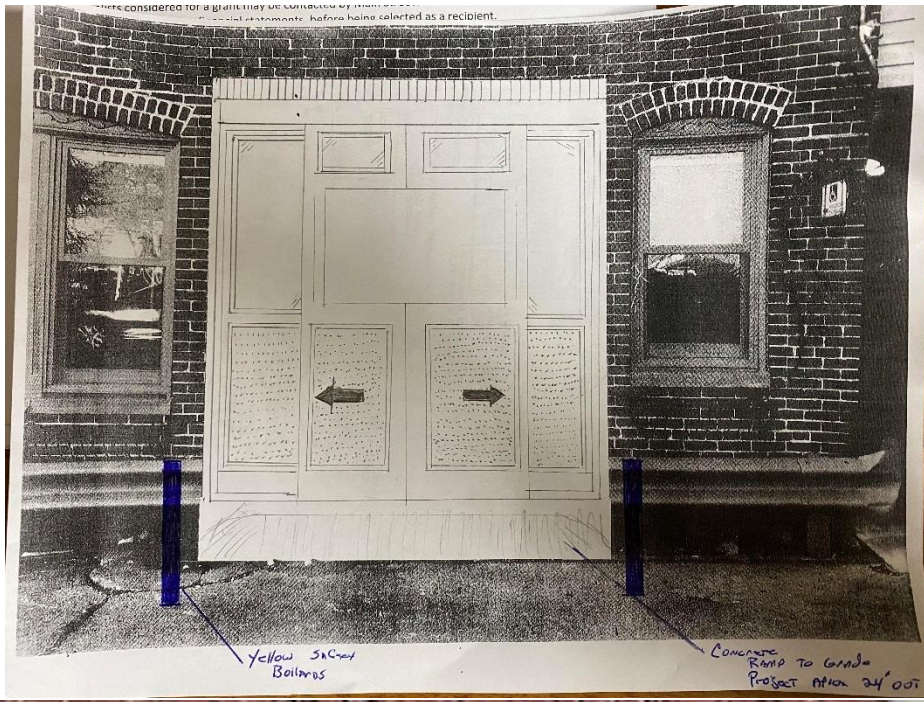 considered for a grant may be contacted by
statements, before being selected as a recipient.
Yellow Safety
Bollards
Concrete
Ramp To Grade
Project Apron 24" out